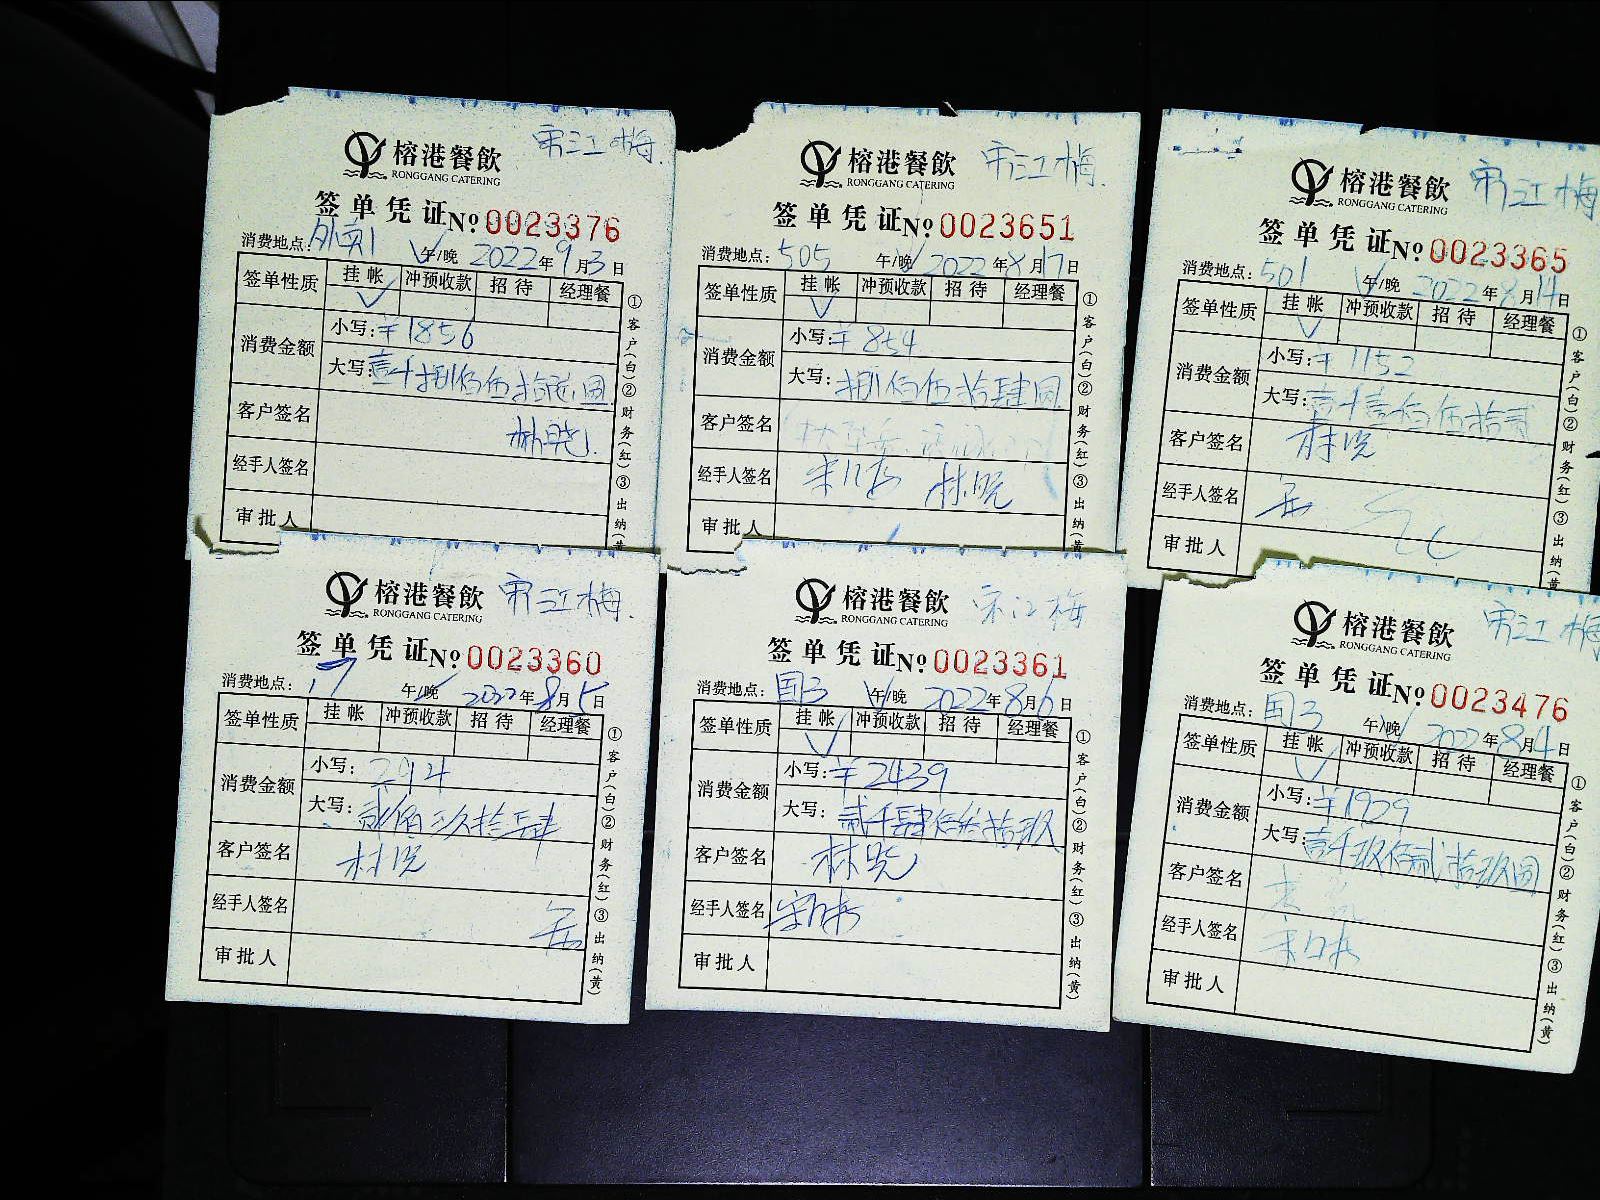 宋江梅
榕港餐飲
RONGGANG CATERING
签单凭证 No 0023376
消费地点：外卖1 午/晚 2022年9月3日
签单性质 挂帐 冲预收款 招待 经理餐
消费金额 小写：¥1856
大写：壹千捌佰伍拾陆圆
客户签名 林晓
经手人签名
审批人
①客户(白)②财务(红)③出纳(黄
宋江梅
榕港餐飲
RONGGANG CATERING
签单凭证 No 0023651
消费地点：505 午/晚 2022年8月17日
签单性质 挂帐 冲预收款 招待 经理餐
消费金额 小写：¥854
大写：捌佰伍拾肆圆
客户签名
经手人签名 林晓
审批人
①客户(白)②财务(红)③出纳(黄
宋江梅
榕港餐飲
RONGGANG CATERING
签单凭证 No 0023365
消费地点：501 午/晚 2022年8月14日
签单性质 挂帐 冲预收款 招待 经理餐
消费金额 小写：¥1152
大写：壹千壹佰伍拾贰
客户签名 林晓
经手人签名
审批人
①客户(白)②财务(红)③出纳(黄
宋江梅
榕港餐飲
RONGGANG CATERING
签单凭证 No 0023360
消费地点： 午/晚 2022年8月5日
签单性质 挂帐 冲预收款 招待 经理餐
消费金额 小写：294
大写：贰佰玖拾肆
客户签名 林晓
经手人签名
审批人
①客户(白)②财务(红)③出纳(黄)
宋江梅
榕港餐飲
RONGGANG CATERING
签单凭证 No 0023361
消费地点：国3 午/晚 2022年8月6日
签单性质 挂帐 冲预收款 招待 经理餐
消费金额 小写：¥2439
大写：贰千肆佰叁拾玖
客户签名 林晓
经手人签名
审批人
①客户(白)②财务(红)③出纳(黄)
宋江梅
榕港餐飲
RONGGANG CATERING
签单凭证 No 0023476
消费地点：国3 午/晚 2022年8月4日
签单性质 挂帐 冲预收款 招待 经理餐
消费金额 小写：¥1929
大写：壹千玖佰贰拾玖圆
客户签名
经手人签名
审批人
①客户(白)②财务(红)③出纳(黄)